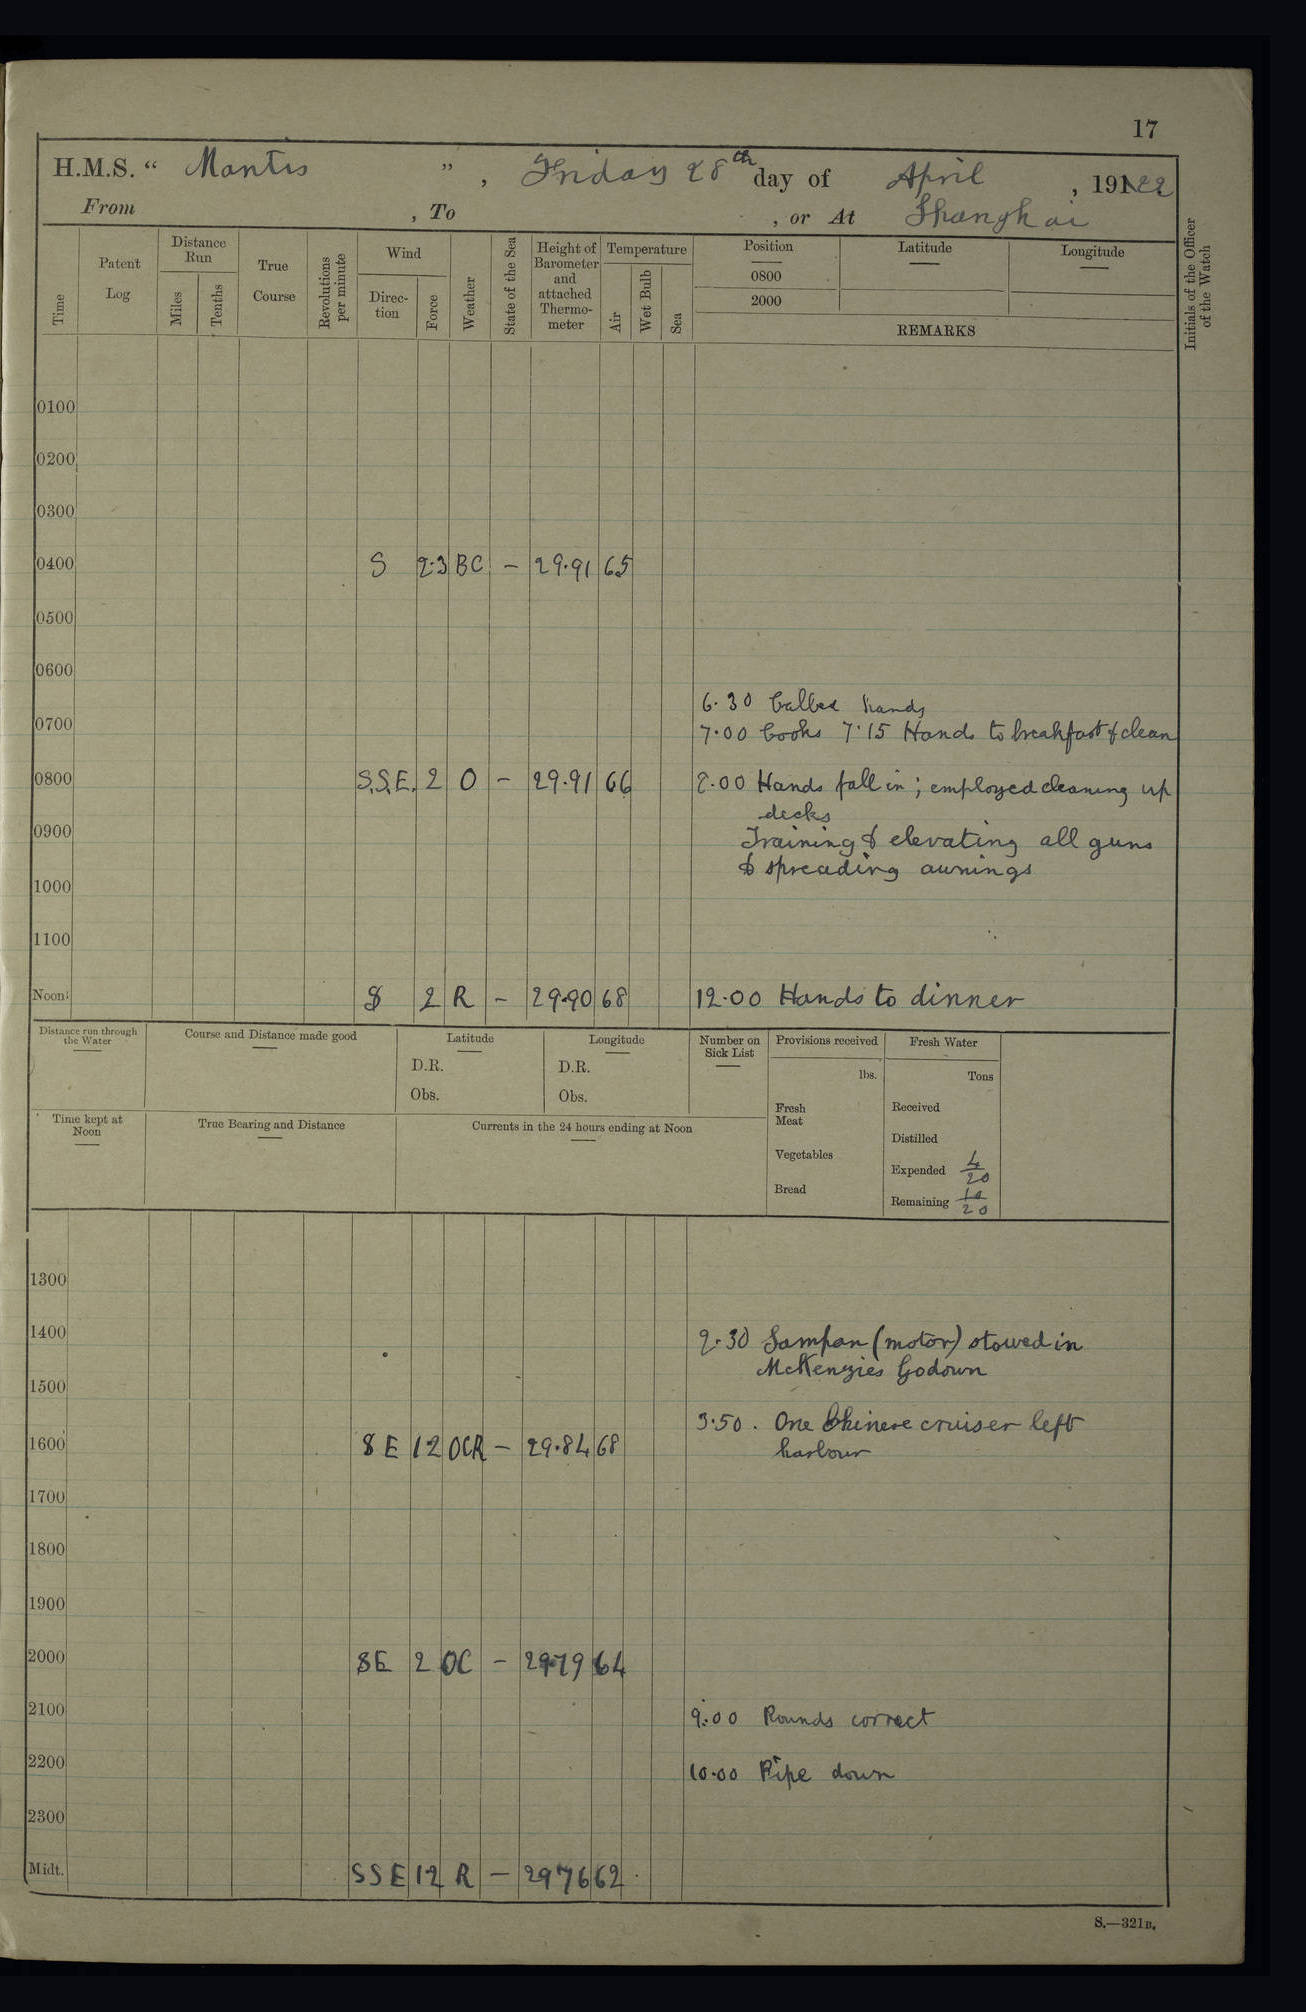 17
H.M.S. “ Mantis ” , Friday 28th day of April , 1922
From , To , or At Shanghai
Time
Patent Log
Distance Run
Miles
Tenths
True Course
Revolutions per minute
Wind
Direc-tion
Force
Weather
State of the Sea
Height of Barometer and attached Thermo-meter
Temperature
Air
Wet Bulb
Sea
Position
0800
2000
Latitude
Longitude
REMARKS
Initials of the Officer of the Watch
0100
0200
0300
0400 S 2·3 BC – 29·91 65
0500
0600
6·30 Called hands
0700 7·00 Cooks 7·15 Hands to breakfast & clean
0800 S.S.E. 2 O – 29·91 66 8·00 Hands fall in ; employed cleaning up
decks
0900 Training & elevating all guns
& spreading awnings
1000
1100
Noon S 2 R – 29·90 68 12·00 Hands to dinner
Distance run through the Water
Course and Distance made good
Latitude
D.R.
Obs.
Longitude
D.R.
Obs.
Number on Sick List
Provisions received
lbs.
Fresh Meat
Vegetables
Bread
Fresh Water
Tons
Received
Distilled
Expended 4/20
Remaining 10/20
Time kept at Noon
True Bearing and Distance
Currents in the 24 hours ending at Noon
1300
1400 2·30 Sampan (motor) stowed in
McKenzies Godown
1500
3·50 . One Chinese cruiser left
1600 SE 12 OCR – 29·84 68 harbour
1700
1800
1900
2000 SE 2 OC – 29·79 64
2100 9:00 Rounds correct
2200 10·00 Pipe down
2300
Midt. SSE 12 R – 2976 62
S.—321B.